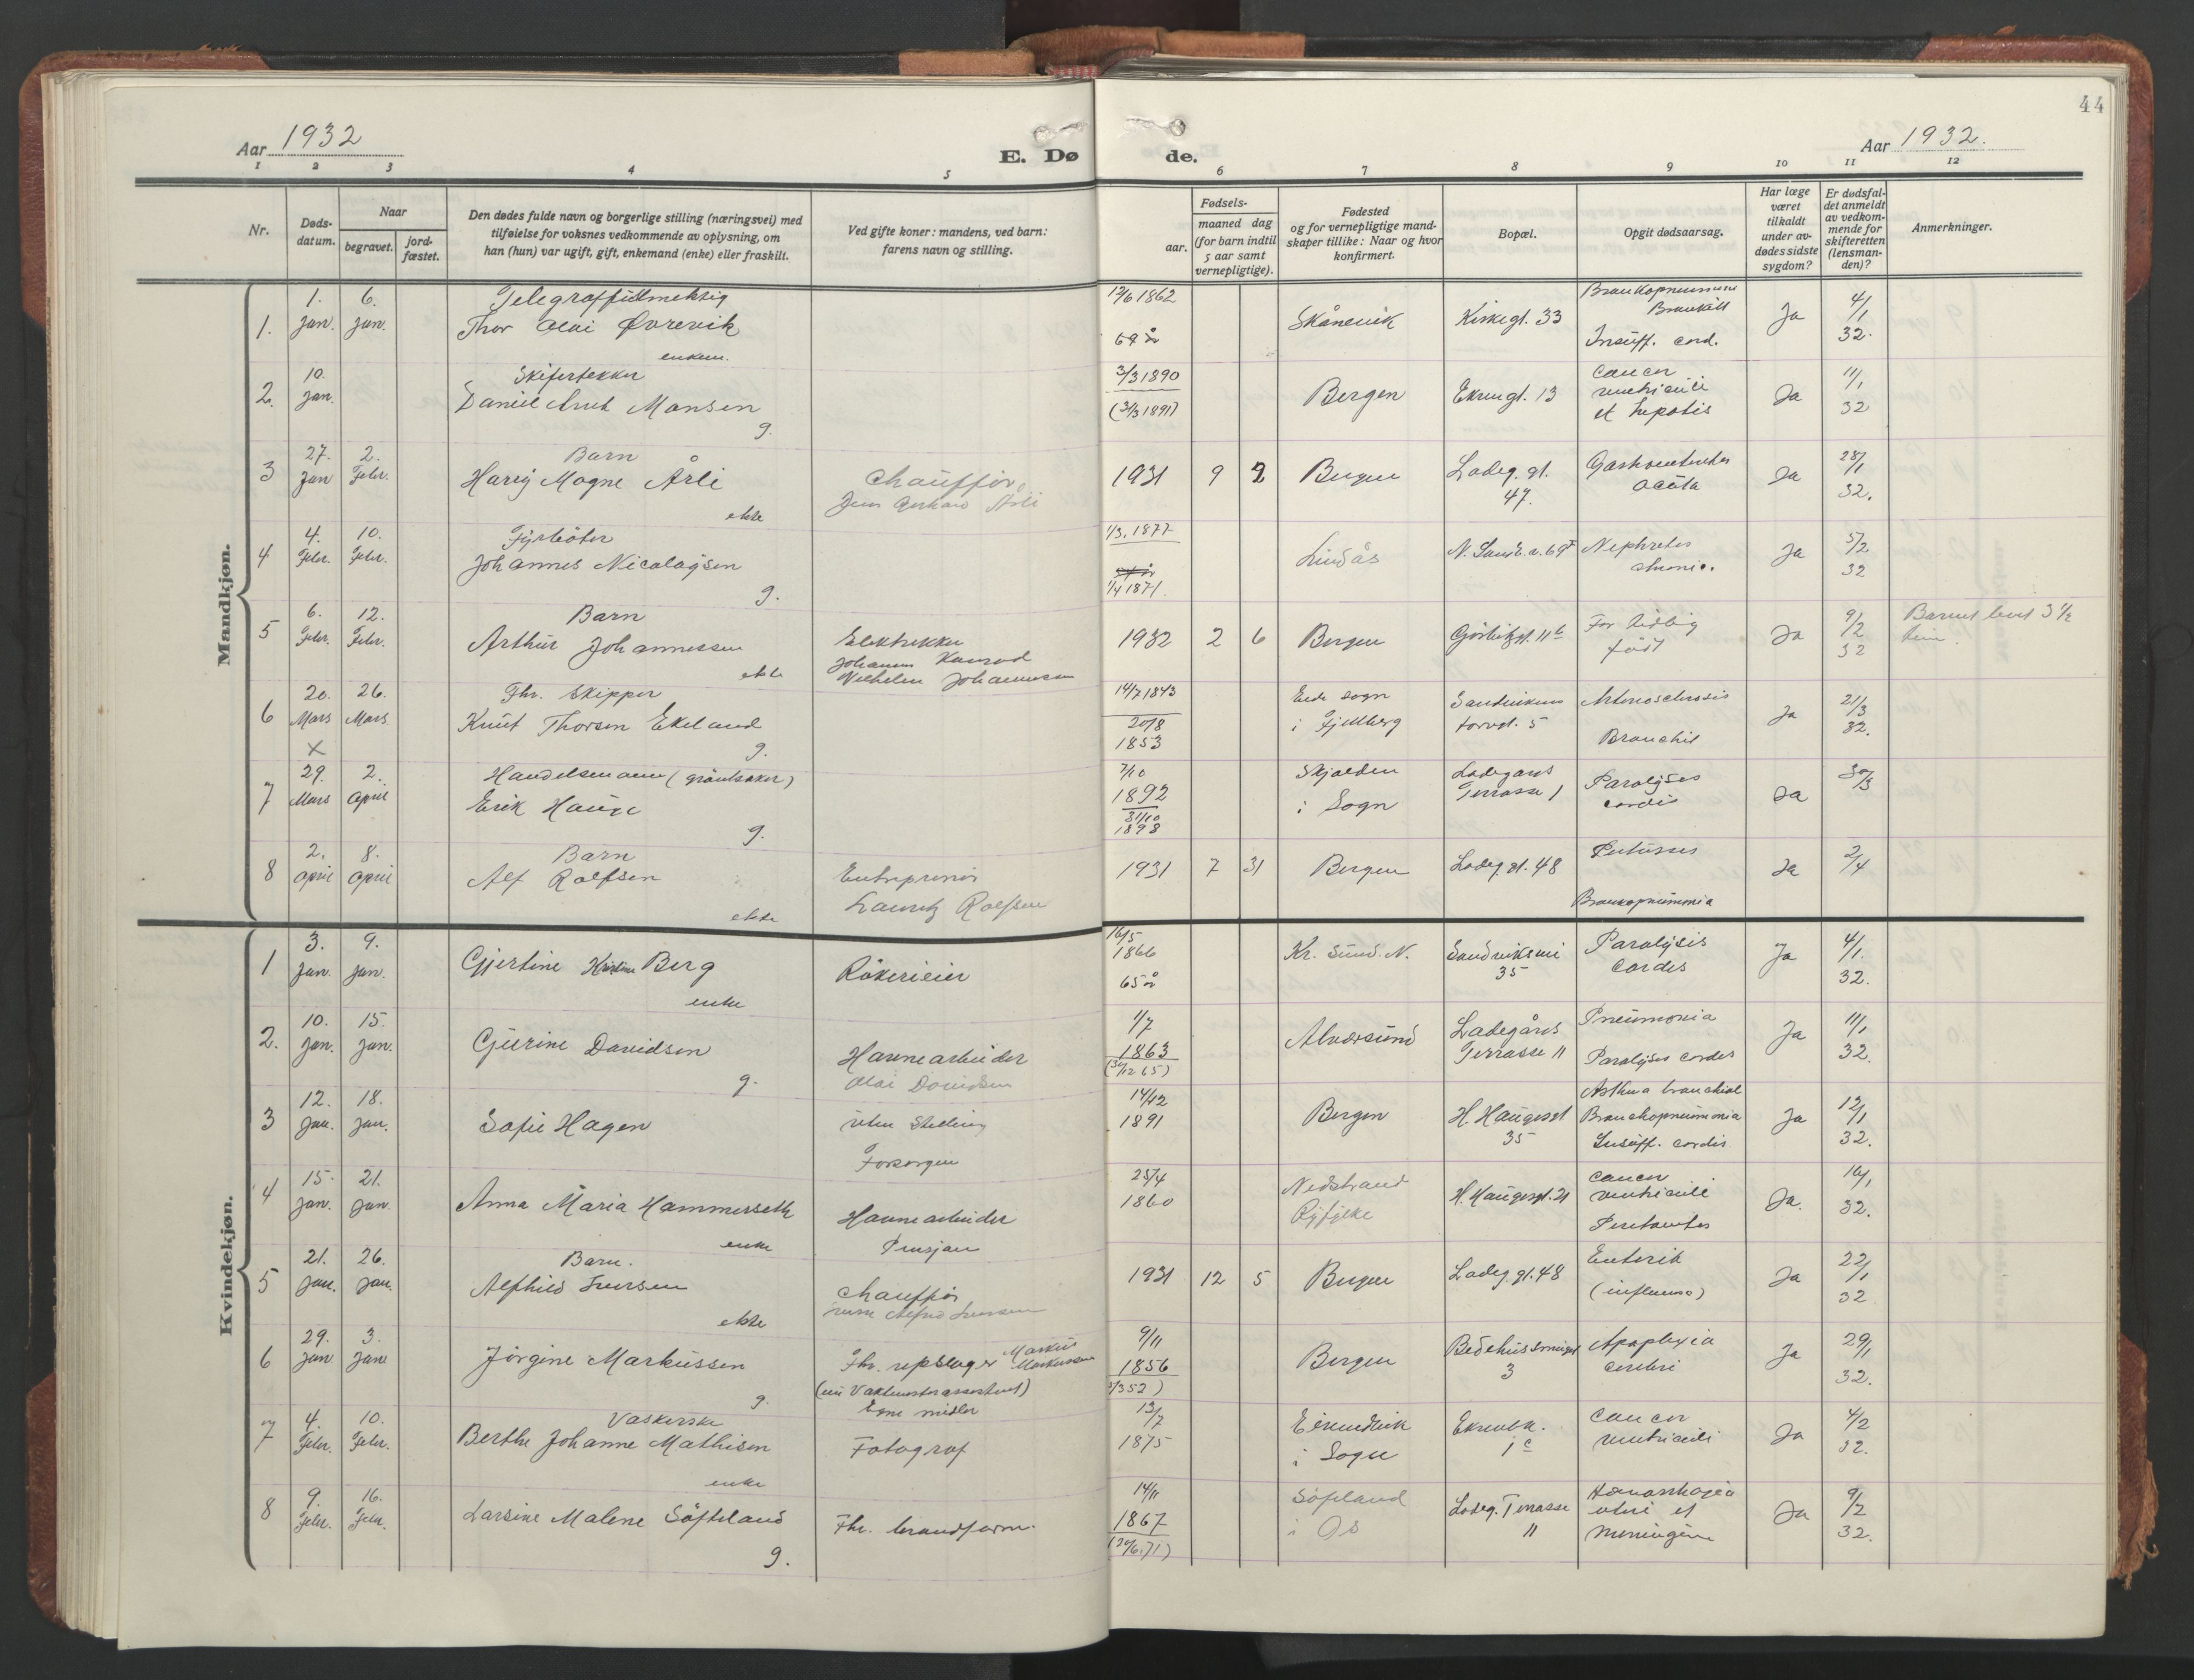 44
Aar 1932
E. Dø
de.
Aar 1932.
1 2 3 4 5 6 7 8 9 10 11 12
Nr.
Døds-
datum.
Naar
begravet.
jord-
fæstet.
Den dødes fulde navn og borgerlige stilling (næringsvei) med
tilføielse for voksnes vedkommende av oplysning, om
han (hun) var ugift, gift, enkemand (enke) eller fraskilt.
Ved gifte koner: mandens, ved barn:
farens navn og stilling.
Fødsels-
aar.
maaned dag
(for barn indtil
5 aar samt
vernepligtige).
Fødested
og for vernepligtige mand-
skaper tillike: Naar og hvor
konfirmert.
Bopæl.
Opgit dødsaarsag.
Har læge
været
tilkaldt
under av-
dødes sidste
sygdom?
Er dødsfal-
det anmeldt
av vedkom-
mende for
skifteretten
(lensman-
den)?
Anmerkninger.
Mandkjøn.
1. 6. Telegraffullmektig 12/6 1862 Bronkopneumoni
1. Jan. Jan. Thor Olai Øvrevik Skånevik Kirkegt. 33 Bronkitt Ja 4/1
enkem. 69 år Insuff. cord. 32.
10. Skifertekker 3/3 1890 Cancer 11/1
2. Jan. Daniel Monsen Bergen Ekrengt. 13 ventriculi Ja
g. (3/3 1891) et hepatis 32
27. 2. Barn
3 Jan Febr. Harry Magne Årli Chauffør 1931 9 2 Bergen Ladeg. gt. Gastroenteritis Ja 28/1
ekte Jens Gerhard Årli 47. acuta 32.
4. 10. Fyrbøter 1/3. 1877
4 Febr. Febr. Johannes Nicolaysen Lindås N. 69 Nephritis Ja 5/2
g. 1/4 1871 chronic. 32
6. 12. Barn
5 Febr. Febr. Arthur Johannessen Elektrikker 1932 2 6 Bergen Görbitzgt. 11b For tidlig Ja 9/2 Barnet levet 3 1/2
ekte Johannes Konrad født 32 time
Wilhelm Johannessen
20. 26. Fhv. Skipper 14/7 1843
6 Mars Mars Knut Thorsen Ekeland Eids sogn Sandvikens Arteriosclerosis Ja 21/3
g. 20/8 i Fjellberg torvgt. 5 Bronchit 32.
1853
x
29. 2. Handelsmann (grøntsaker) 7/10 Skjolden Ladegårds Paralysis 30/3
7 Mars April Erik Hauge 1892 i Sogn Terrasse 1 cordis Ja
g. 31/10
1898
2. 8. Barn
8 April April Alf Rolfsen Entreprenør 1931 7 31 Bergen Ladeg. gt. 48 Pertussis Ja 2/4
ekte Lauritz Rolfsen Bronkopneumonia
Kvindekjøn.
3. 9. 16/5
1 Jan. Jan. Gjertine Kristine Berg Røkerieier 1866 Kr. Sund. N. Sandviksvei Paralysis Ja 4/1.
enke 65 år 35 cordis 32.
10. 15. 1/7
2. Jan. Jan. Gjurine Davidsen Havnearbeider 1863 Alversund Ladegårds Pneumonia Ja 11/1
g. Olai Davidsen (12 65) Terrasse 11 Paralysis cordis 32.
12. 18. 14/12 Asthma bronchial
3 Jan. Jan. Sofie Hagen uten Stilling 1891 Bergen H. Haugesgt Bronchopneumonia Ja 12/1
Forsorgen 35 Insuff. cordis 32.
15. 21. 25/4 Cancer
4 Jan. Jan. Anna Maria Hammerseth Havnearbeider 1860 Nedstrand H. Haugesgt. 21 ventriculi Ja. 16/1
enke Pensjon Ryfylke Peritonitis 32.
21. 26. Barn.
5 Jan. Jan. Alfhild Iversen Chauffør 1931 12 5 Bergen Ladeg. gt. 48 Enterit Ja 22/1
ekte Alfred Iversen (influensa) 32
29. 3. 9/11
6 Jan Jan Jørgine Markussen Fhv. repslager Markus Markussen 1856 Bergen Bedehussmuget Apoplexia Ja 29/1
g. (nu Vaktmesterassistent) 3 cerebri 32.
Egne midler
4. 10. Vaskerske 13/7
7 Febr. Febr. Berthe Johanne Mathisen Fotograf 1875 Eivindvik Ekrenbk. Cancer Ja 4/2
enke i Sogn 1c ventriculi 32.
9. 16. 14/11
8 Febr. Febr. Larsine Malene Søfteland Fhv. brandform. 1867 Søfteland Ladeg. Terrasse uteri et Ja 9/2
g. (6.71) i Os 11 32.